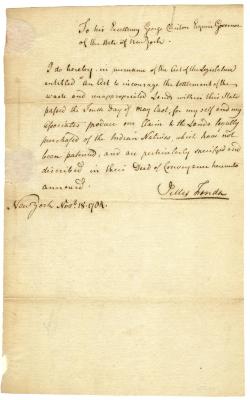 To his Excellency George Clinton Esquire Governor
of the State of New York.
I do hereby in pursuance of the Act of the Legislature
entitled "An Act to encourage the settlement of the
waste and unappropriated Lands within this State
passed the Tenth Day of May last, for my self and my
Associates produce our Claim to the Lands
purchased of the Indian Natives, which have not
been patented, and are particularly specified and
described in their Deed of Conveyance hereunto
annexed
Jelles Fonda
New York Novr. 18. 1784.